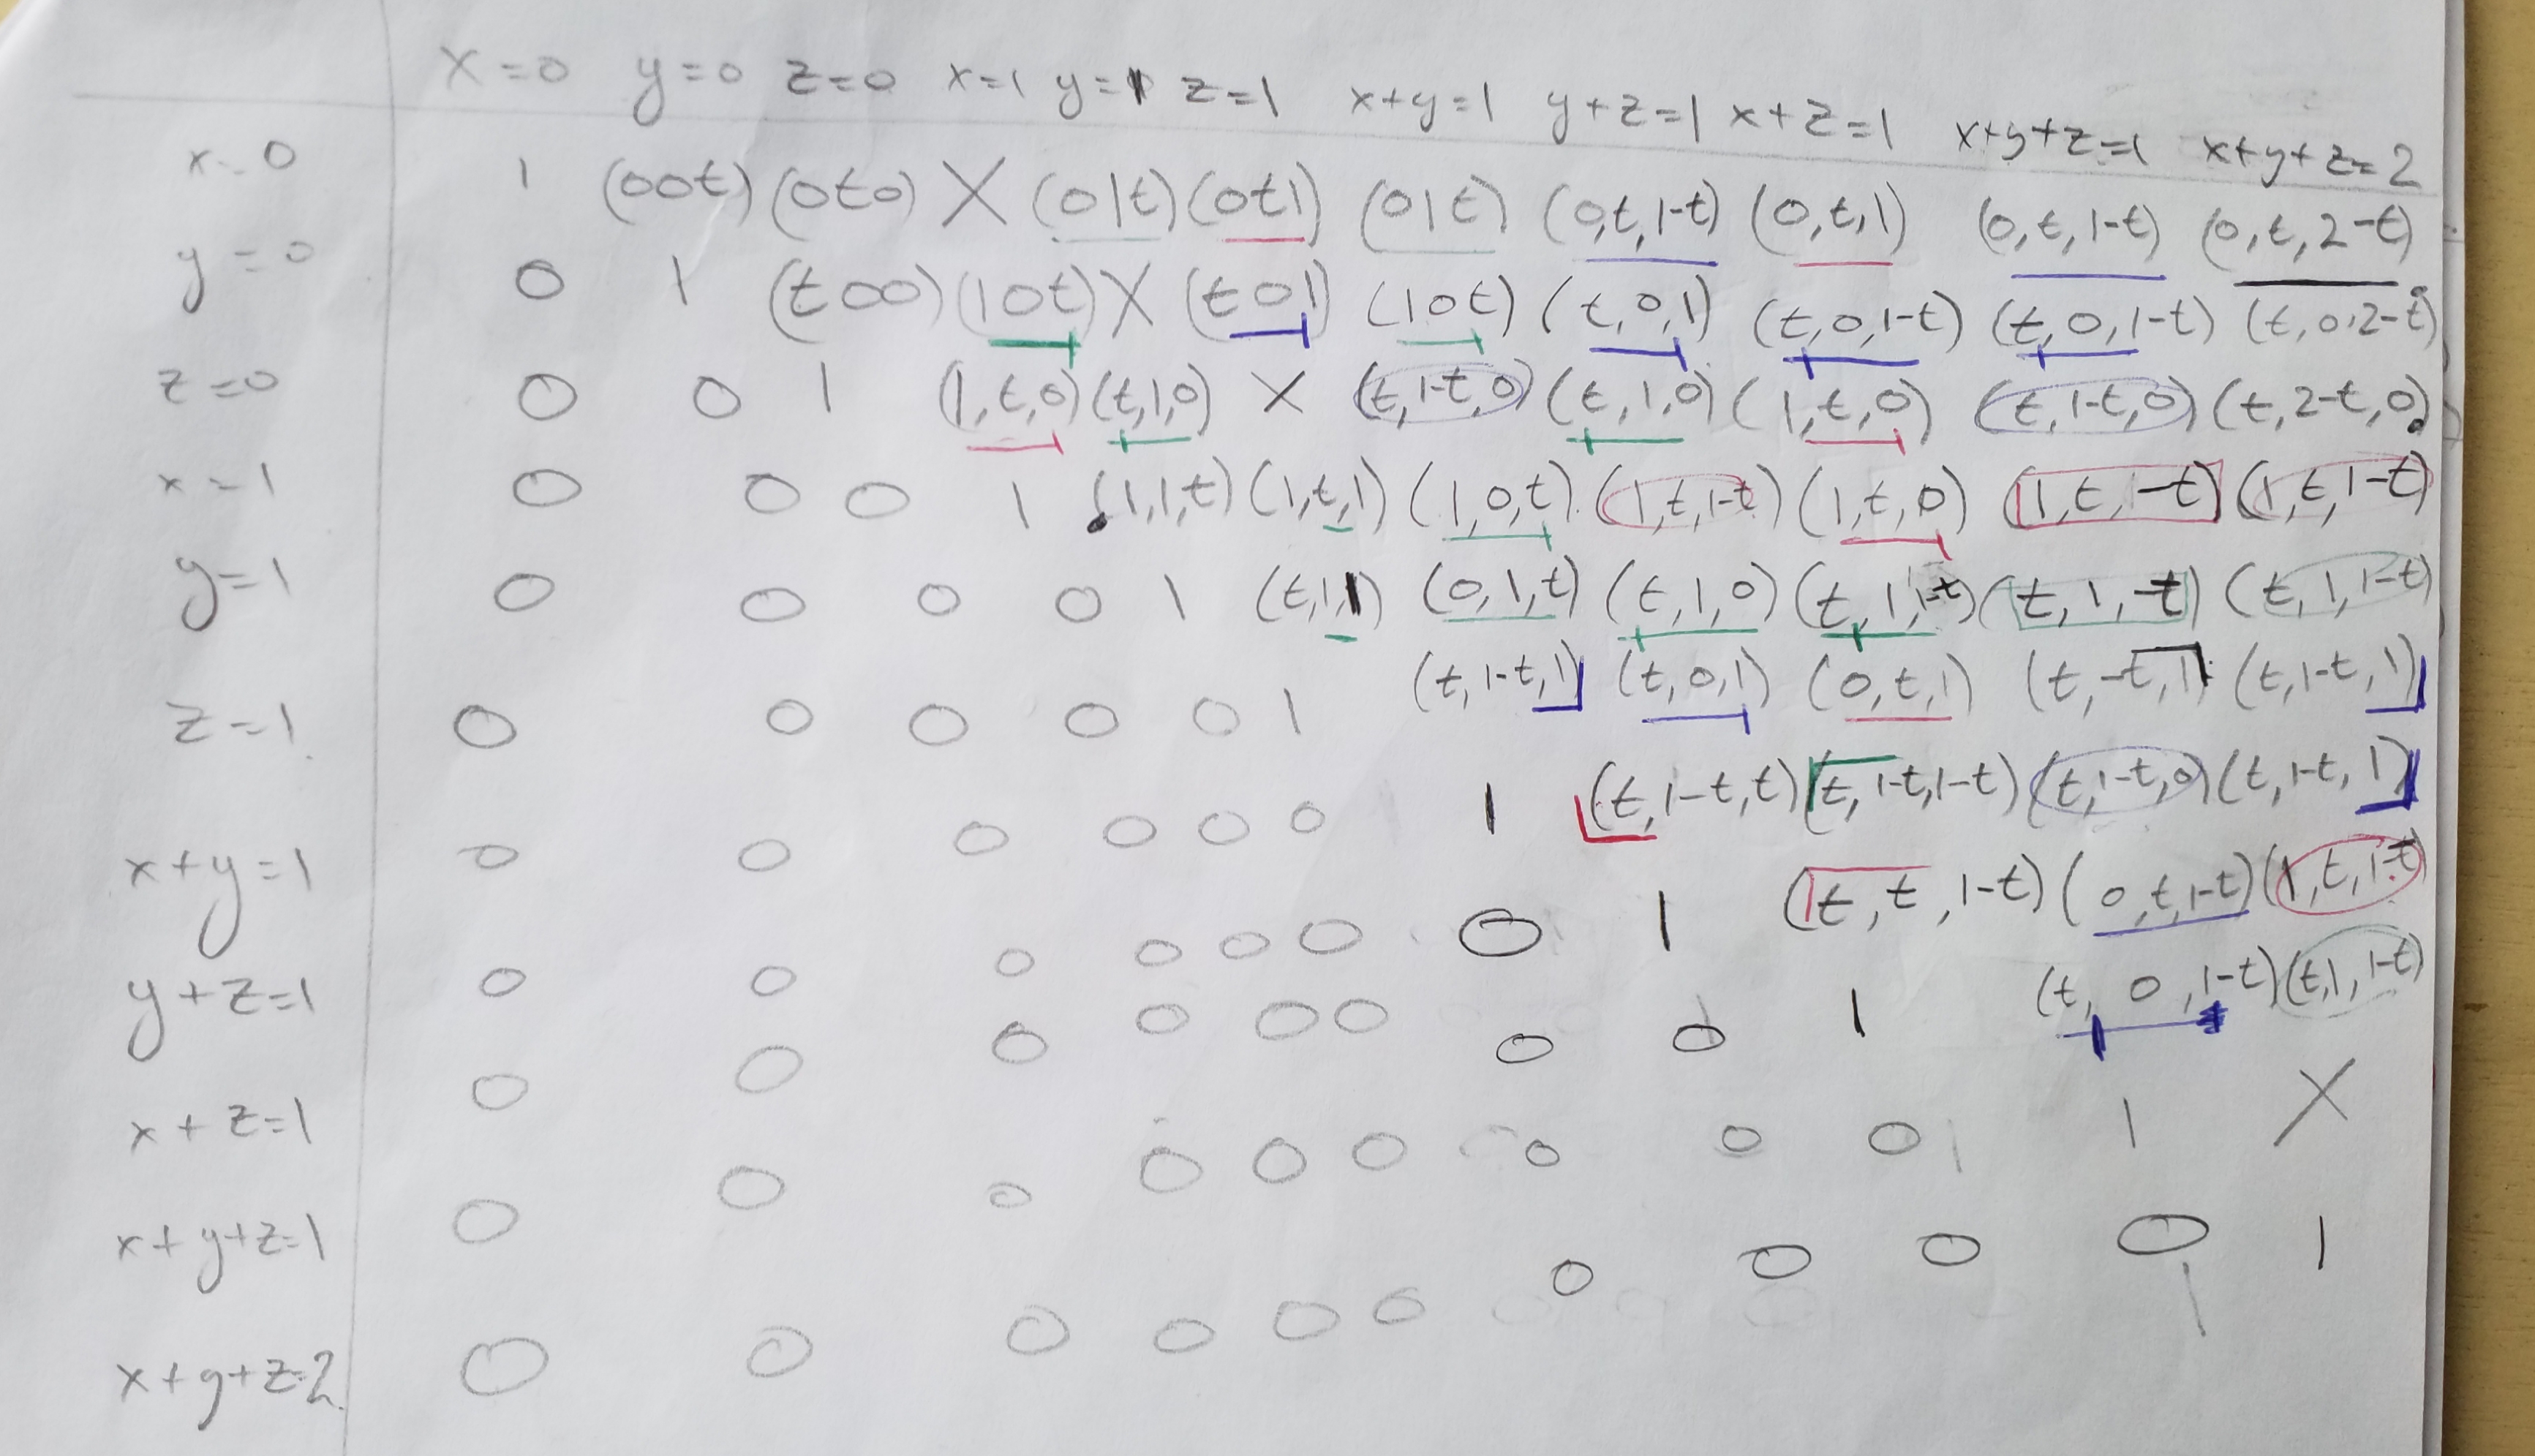 x=0 y=0 z=0 x=1 y=1 z=1 x+y=1 y+z=1 x+z=1 x+y+z=1 x+y+z=2
x=0 1 (00t) (0t0) X (01t) (0t1) (01t) (0,t,1-t) (0,t,1) (0,t,1-t) (0,t,2-t)
y=0 0 1 (t00) (10t) X (t01) (10t) (t,0,1) (t,0,1-t) (t,0,1-t) (t,0,2-t)
z=0 0 0 1 (1,t,0) (t,1,0) X (t,1-t,0) (t,1,0) (1,t,0) (t,1-t,0) (t,2-t,0)
x=1 0 0 0 1 (1,1,t) (1,t,1) (1,0,t) (1,t,1-t) (1,t,0) (1,t,-t) (1,t,1-t)
y=1 0 0 0 0 1 (t,1,1) (0,1,t) (t,1,0) (t,1,1-t) (t,1,-t) (t,1,1-t)
z=1 0 0 0 0 0 1 (t,1-t,1) (t,0,1) (0,t,1) (t,-t,1) (t,1-t,1)
x+y=1 0 0 0 0 0 0 1 (t,1-t,t) (t,1-t,1-t) (t,1-t,0) (t,1-t,1)
y+z=1 0 0 0 0 0 0 0 1 (t,t,1-t) (0,t,1-t) (1,t,1-t)
x+z=1 0 0 0 0 0 0 0 0 1 (t,0,1-t) (t,1,1-t)
x+y+z=1 0 0 0 0 0 0 0 0 0 1 X
x+y+z=2 0 0 0 0 0 0 0 0 0 0 1